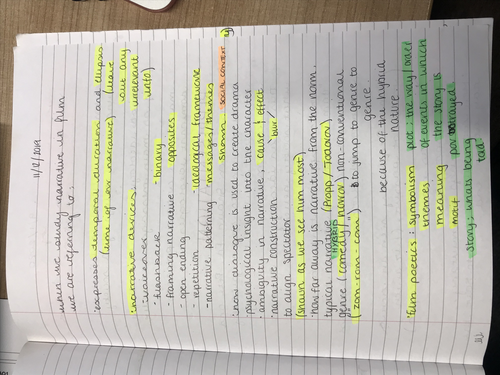 11/12/2019
when we study narrative in film
we are referring to:
· expresses temporal durations and ellipsis
(time of an narrative) (leave
out any
irrelevant
info)
· narrative devices
- voiceover
- flashback
- binary
opposites
- framing narrative
- open ending
- repetition
- ideological framework
- narrative patterning
- messages/themes
shown
social context
· how dialogue is used to create drama
psychological insight into the character
· ambiguity in narrative, cause & effect
· narrative construction
to align spectator
(shaun as we see him most)
· how far away is narrative from the norm.
typical narrative (Propp / Todorov)
hybrid
genre (comedy / horror) non-conventional
("zom-rom-com")
to jump to genre to
genre
because of the hybrid
nature.
· film poetics: symbolism
themes
meaning
motif
plot: the way/order
of events in which
the story is
portrayed
story: whats being
told